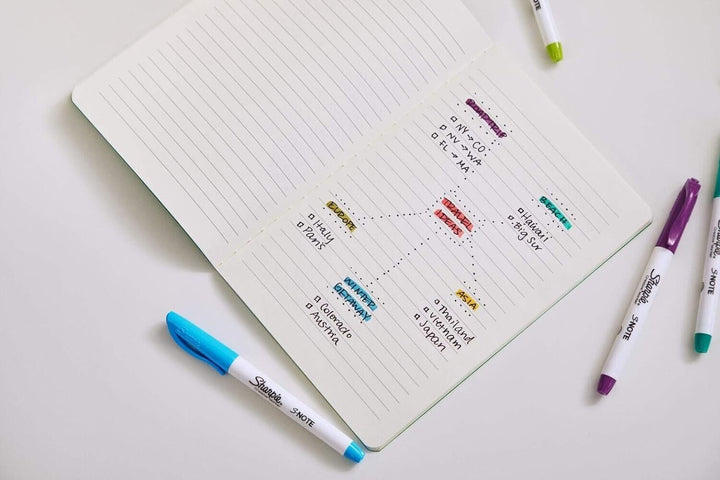 ROADTRIP
NY → CO
NV → WA
FL → MA
EUROPE
Italy
Paris
TRAVEL
IDEAS
BEACH
Hawaii
Big Sur
WINTER
GETAWAY
Colorado
Austria
ASIA
Thailand
Vietnam
Japan
Sharpie
S·NOTE
Sharpie
S·NOTE
Sharpie
S·NOTE
OTE